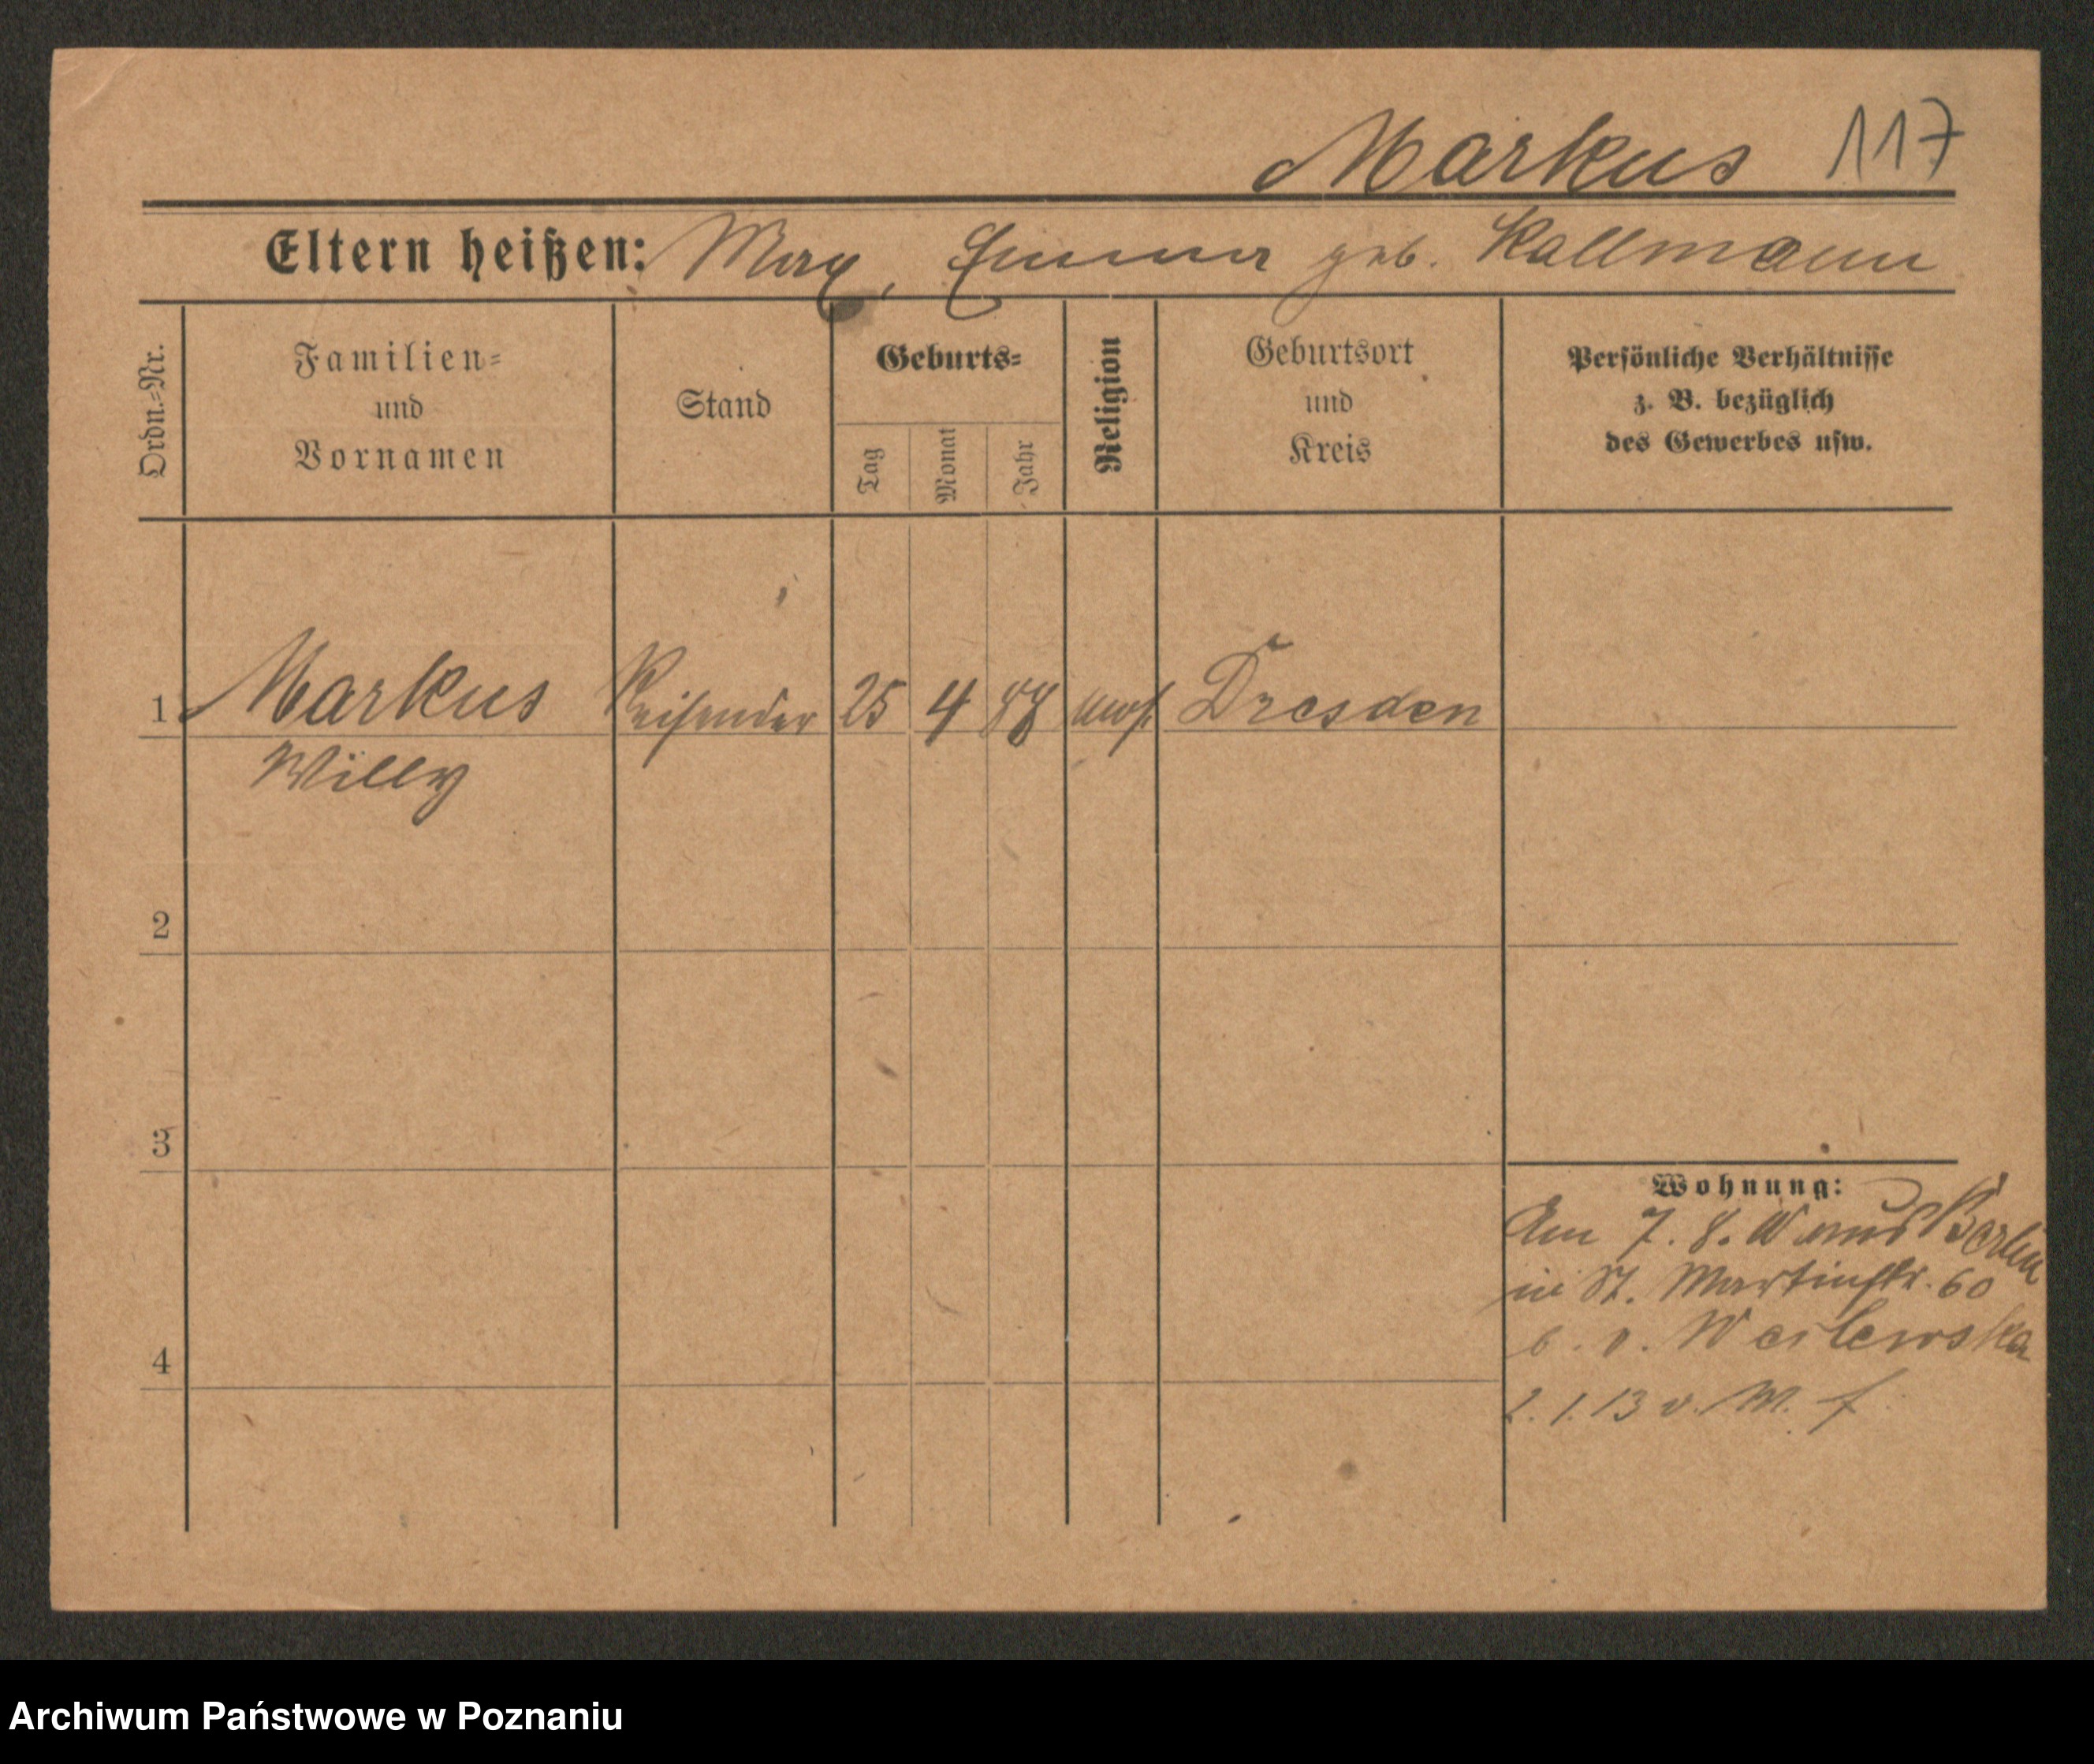 Markus 117
Eltern heißen: Max, Emma geb. Kallmann
Ordn.-Nr.
Familien-
und
Vornamen
Stand
Geburts-
Tag
Monat
Jahr
Religion
Geburtsort
und
Kreis
Persönliche Verhältnisse
z. B. bezüglich
des Gewerbes usw.
1 Markus Reisender 25 4 88 Dresden
Willy
2
3
4
Wohnung:
Am 7. 8. aus Berlin
in St. Martinstr. 60
b. v.
2. 1. 13 v.
Archiwum Państwowe w Poznaniu